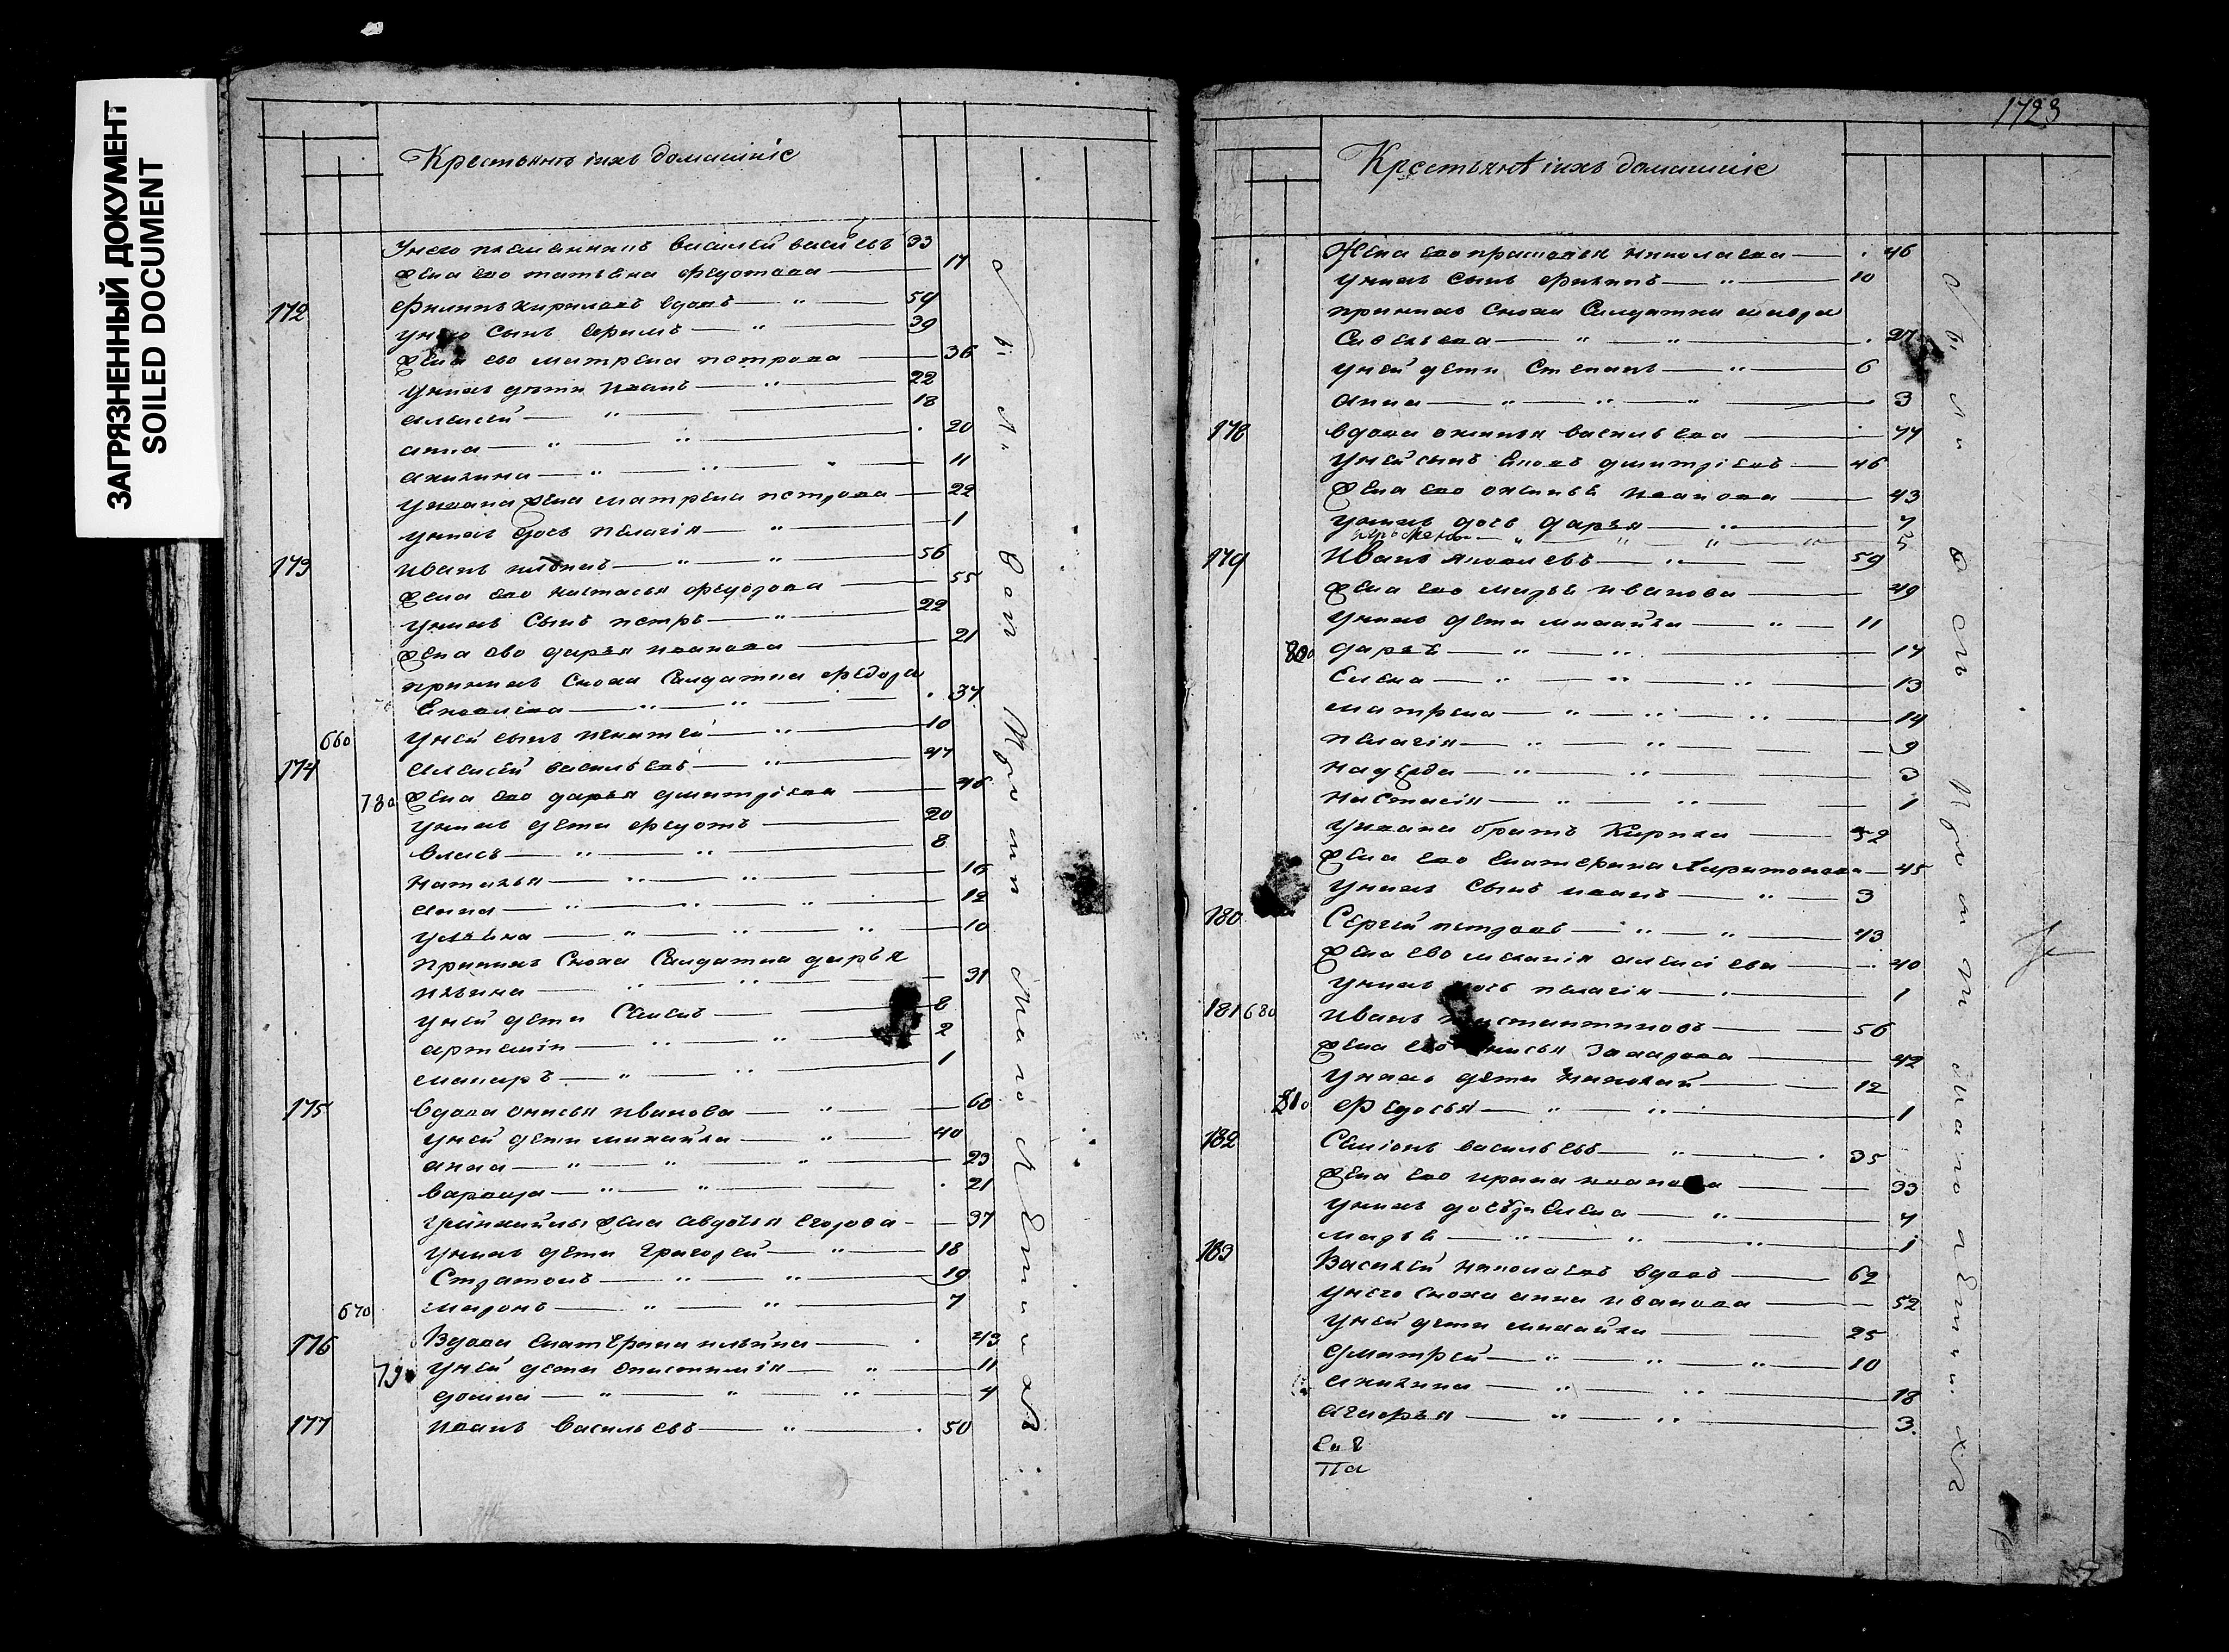 ЗАГРЯЗНЕННЫЙ ДОКУМЕНТ
SOILED DOCUMENT
Крестьянъ iихъ домашнiе
Унего племянникъ василей васильевъ 33
жена ево татьяна федотова 17
172 Филипъ кириловъ вдовъ 59
унего сынъ ефимъ 39
жена ево матрена петрова 36
унихъ дѣти иванъ 22
алексей 18
анна 20
акилина 11
уивана жена матрена петрова 22
унихъ дочь пелагiя 1
173 иванъ 56
жена ево настасья федорова 55
унихъ сынъ петръ 22
жена ево дарья иванова 21
принихъ сноха салдатка федора
Яковлева 37
660 уней сынъ игнатей 10
174 алексей васильевъ 47
780 жена ево дарья дмитрiева 46
унихъ дети федотъ 20
власъ 8
наталья 16
анна 12
ульяна 10
принихъ сноха салдатка дарья
ильина 31
уней дети Семенъ 8
артемiй 2
макаръ 1
175 вдова анисья иванова 60
уней дети михайла 40
анна 23
варвара 21
умихайлы жена авдотья егорова 37
унихъ дети григорей 18
Стратонъ 19
670 миронъ 7
176 Вдова екатерина ильина 43
790 уней дети 11
4
177 иванъ васильевъ 50
Обѣ дѣ вои Протии Сего лѣтахъ
1723
Крестьянѣ iихъ домашнiе
Жена ево прасковья николаева 46
унихъ сынъ филипъ 10
принихъ сноха салдатка
Савельева 27
уней дети Степанъ 6
анна 3
178 вдова васильева 77
уней сынъ Яковъ дмитрiевъ 46
жена ево иванова 43
унихъ дочь дарья 7
5
179 Иванъ Яковлевъ 59
жена ево марья иванова 49
унихъ дети михайла 11
800 дарья 17
Елена 13
матрена 14
пелагiя 9
надежда 3
настасiя 1
уивана братъ Кирила 52
жена ево екатерина харитонова 45
унихъ сынъ иванъ 3
180 Сергей петровъ 43
жена ево алексiева 40
унихъ дочь пелагiя 1
181 680 иванъ 56
жена ево Захарова 42
унихъ дети николай 12
810 Федосья 1
182 Семiонъ васильевъ 35
жена ево ирина иванова 33
унихъ Елена 7
марья 1
183 Василей николаевъ вдовъ 62
унего сноха анна иванова 52
уней дети михайла 25
дмитрей 10
акилина 18
агафья 3